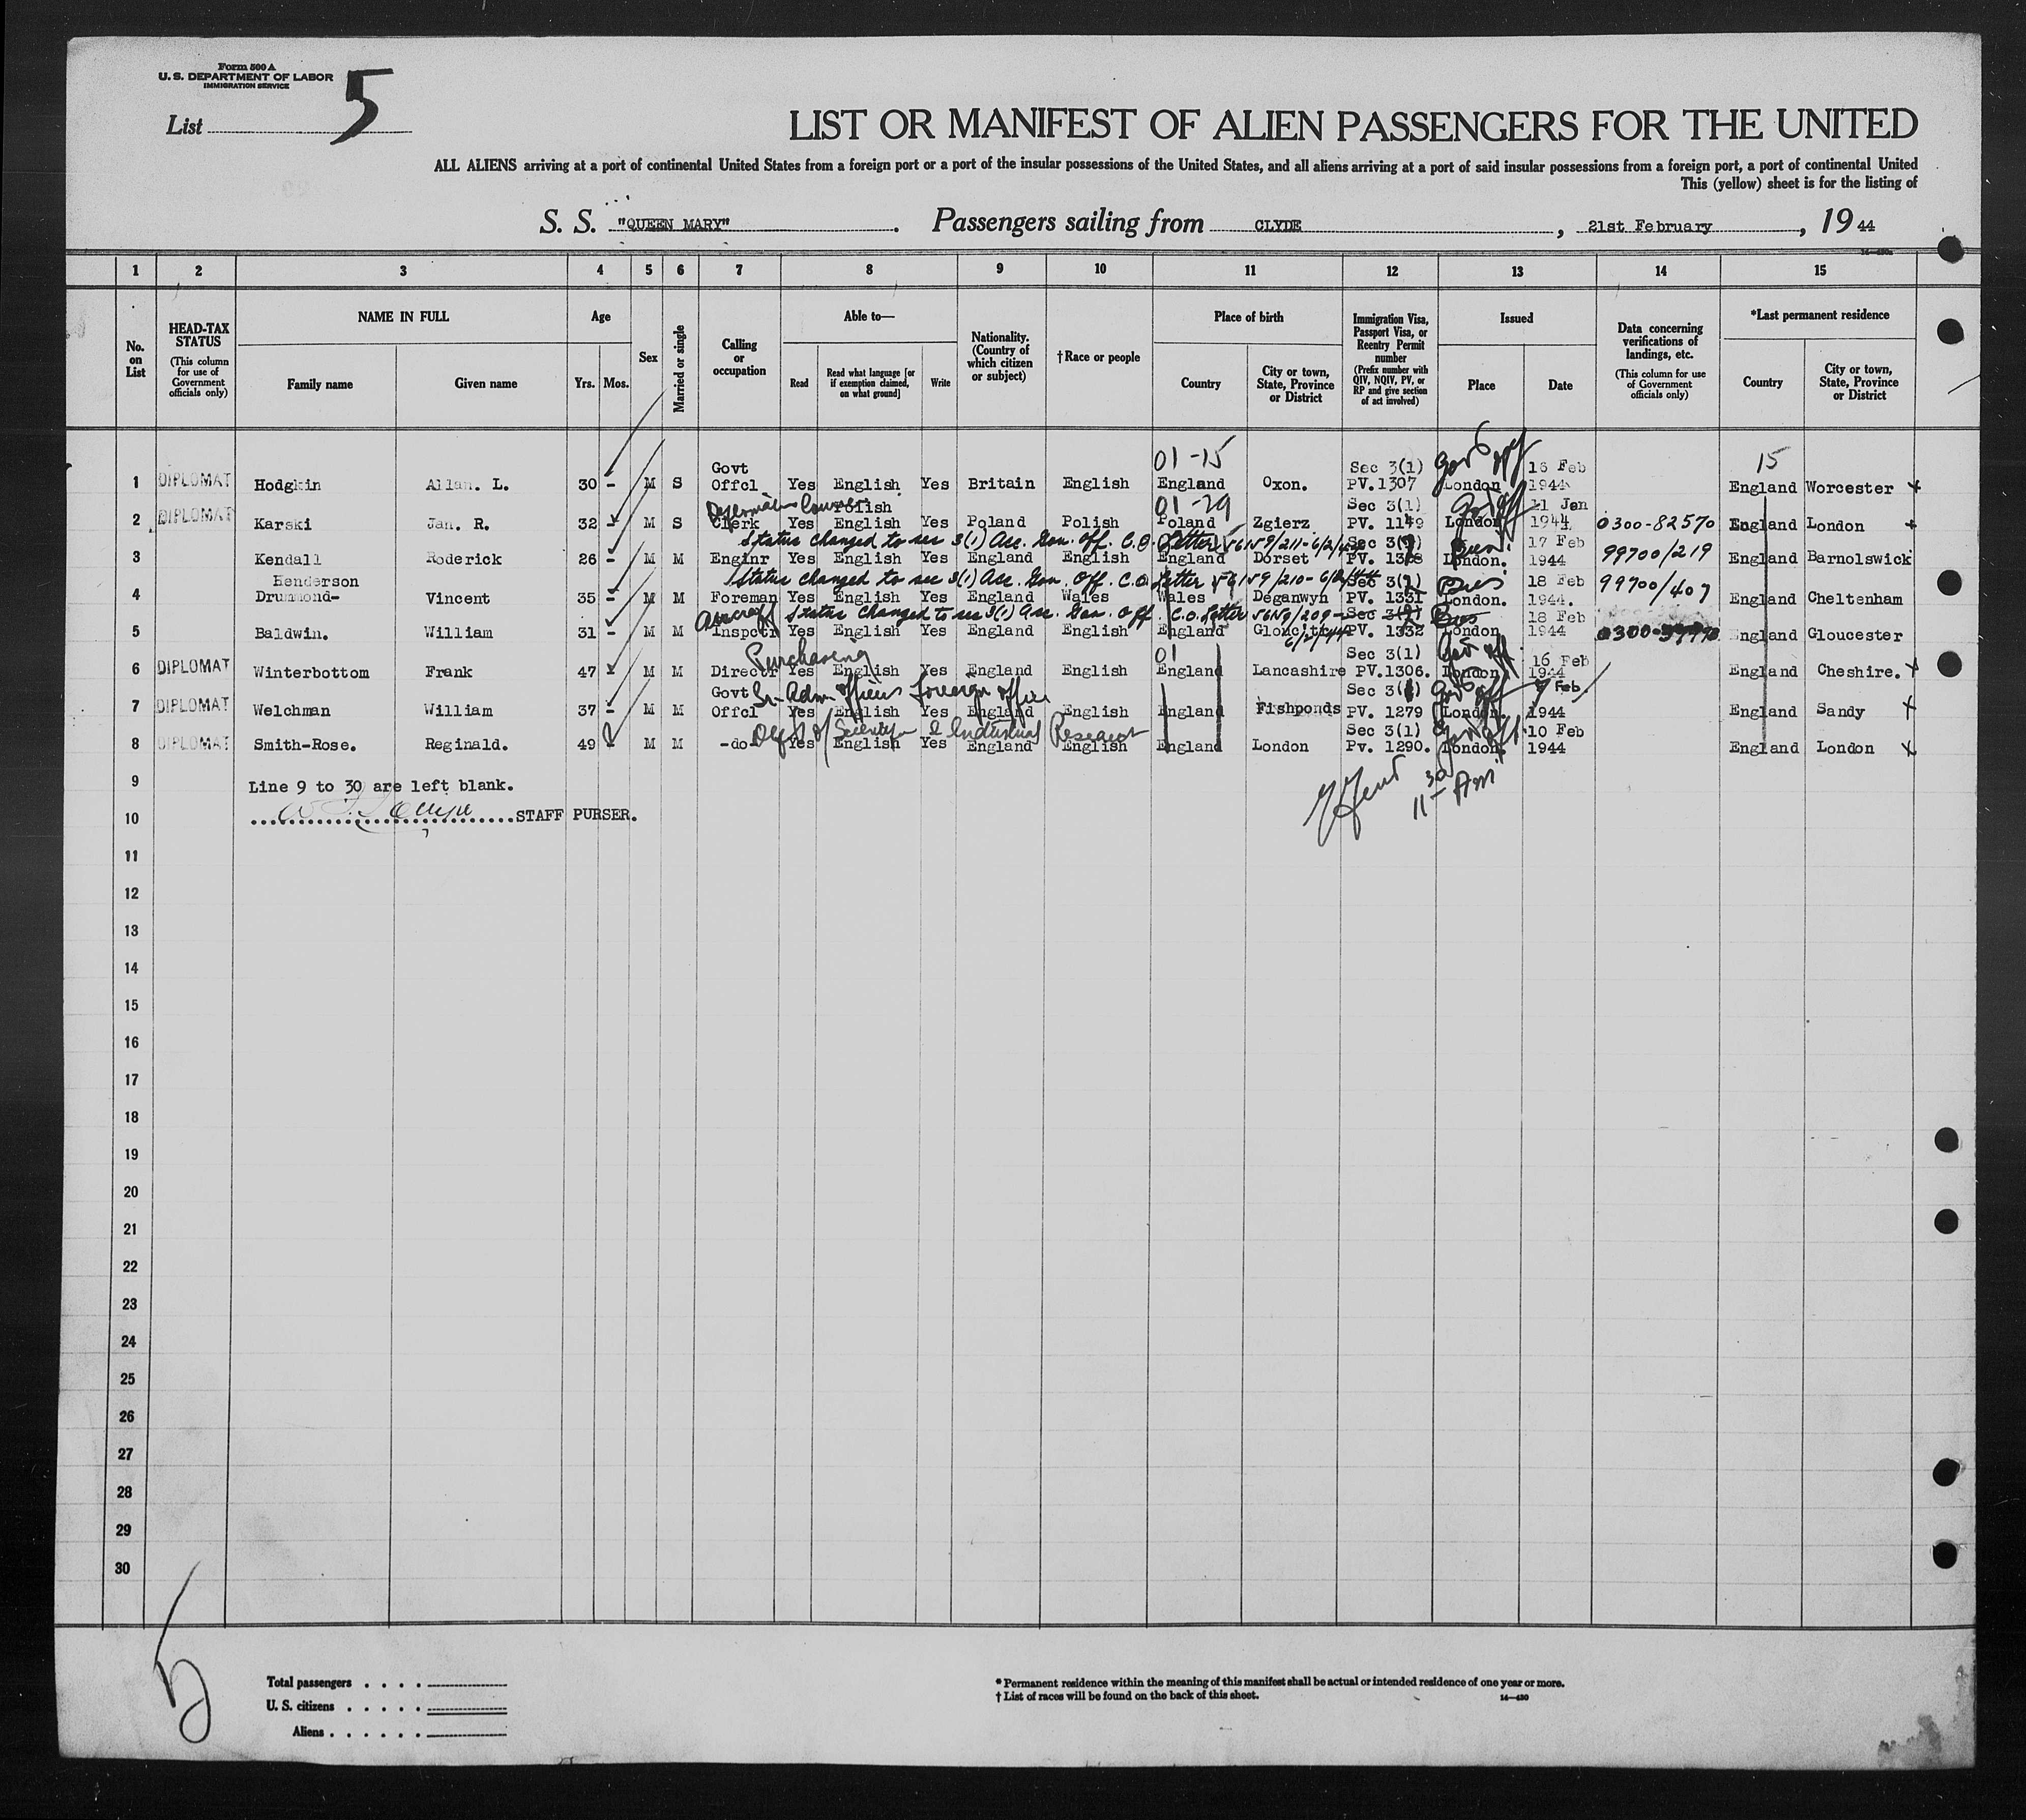 Form 500 A
U. S. DEPARTMENT OF LABOR
IMMIGRATION SERVICE
List 5
LIST OR MANIFEST OF ALIEN PASSENGERS FOR THE UNITED
ALL ALIENS arriving at a port of continental United States from a foreign port or a port of the insular possessions of the United States, and all aliens arriving at a port of said insular possessions from a foreign port, a port of continental United
This (yellow) sheet is for the listing of
S. S. "QUEEN MARY". Passengers sailing from CLYDE, 21st February, 1944
1 2 3 4 5 6 7 8 9 10 11 12 13 14 15
No. on List
HEAD-TAX STATUS (This column for use of Government officials only)
NAME IN FULL
Family name Given name
Age
Yrs. Mos.
Sex
Married or single
Calling or occupation
Able to—
Read Read what language [or if exemption claimed, on what ground] Write
Nationality. (Country of which citizen or subject)
†Race or people
Place of birth
Country City or town, State, Province or District
Immigration Visa, Passport Visa, or Reentry Permit number (Prefix number with QIV, NQIV, PV, or RP and give section of act involved)
Issued
Place Date
Data concerning verifications of landings, etc. (This column for use of Government officials only)
*Last permanent residence
Country City or town, State, Province or District
01-15 15
Govt Sec 3(1) Gov't off 16 Feb
1 DIPLOMAT Hodgkin Allan. L. 30 - M S Offcl Yes English Yes Britain English England Oxon. PV.1307 London 1944 England Worcester
Polish 01-29 Sec 3(1) 11 Jan
2 DIPLOMAT Karski Jan. R. 32 - M S Clerk Yes English Yes Poland Polish Poland Zgierz PV. 1149 London 1944 0300-82570 England London
Status changed to sec 3(1) Acc. Gov. Off. C.O. Letter 56159/211-6/2/44 17 Feb
3 Kendall Roderick 26 - M M Enginr Yes English Yes England English England Dorset PV. London. 1944 99700/219 England Barnolswick
Henderson Status changed to sec 3(1) Acc. Gov. Off. C.O. Letter 56159/210- 18 Feb
4 Drummond- Vincent 35 - M M Foreman Yes English Yes England Wales Wales Deganwyn PV. 1331 London. 1944. 99700/407 England Cheltenham
Aircraft Status changed to sec 3(1) Acc. Gov. Off. C.O. Letter 5659/209- 6/2/44 18 Feb
5 Baldwin. William 31 - M M Inspctr Yes English Yes England English England PV. 1332 London 1944 England Gloucester
Purchasing 01 Sec 3(1) Gov Off 16 Feb
6 DIPLOMAT Winterbottom Frank 47 - M M Directr Yes English Yes England English England Lancashire PV.1306. London 1944 England Cheshire.
Govt Sr. Adm Officer Foreign Office Sec 3(1) Feb.
7 DIPLOMAT Welchman William 37 - M M Offcl Yes English Yes England English England Fishponds PV. 1279 London. 1944 England Sandy
Dept of Scientific & Industrial Research Sec 3(1) 10 Feb
8 DIPLOMAT Smith-Rose. Reginald. 49 - M M -do- Yes English Yes England English England London Pv. 1290. London. 1944 England London
9 Line 9 to 30 are left blank.
10 STAFF PURSER.
11 30 AM
11
12
13
14
15
16
17
18
19
20
21
22
23
24
25
26
27
28
29
30
5
Total passengers
U. S. citizens
Aliens
* Permanent residence within the meaning of this manifest shall be actual or intended residence of one year or more.
† List of races will be found on the back of this sheet.
14—430